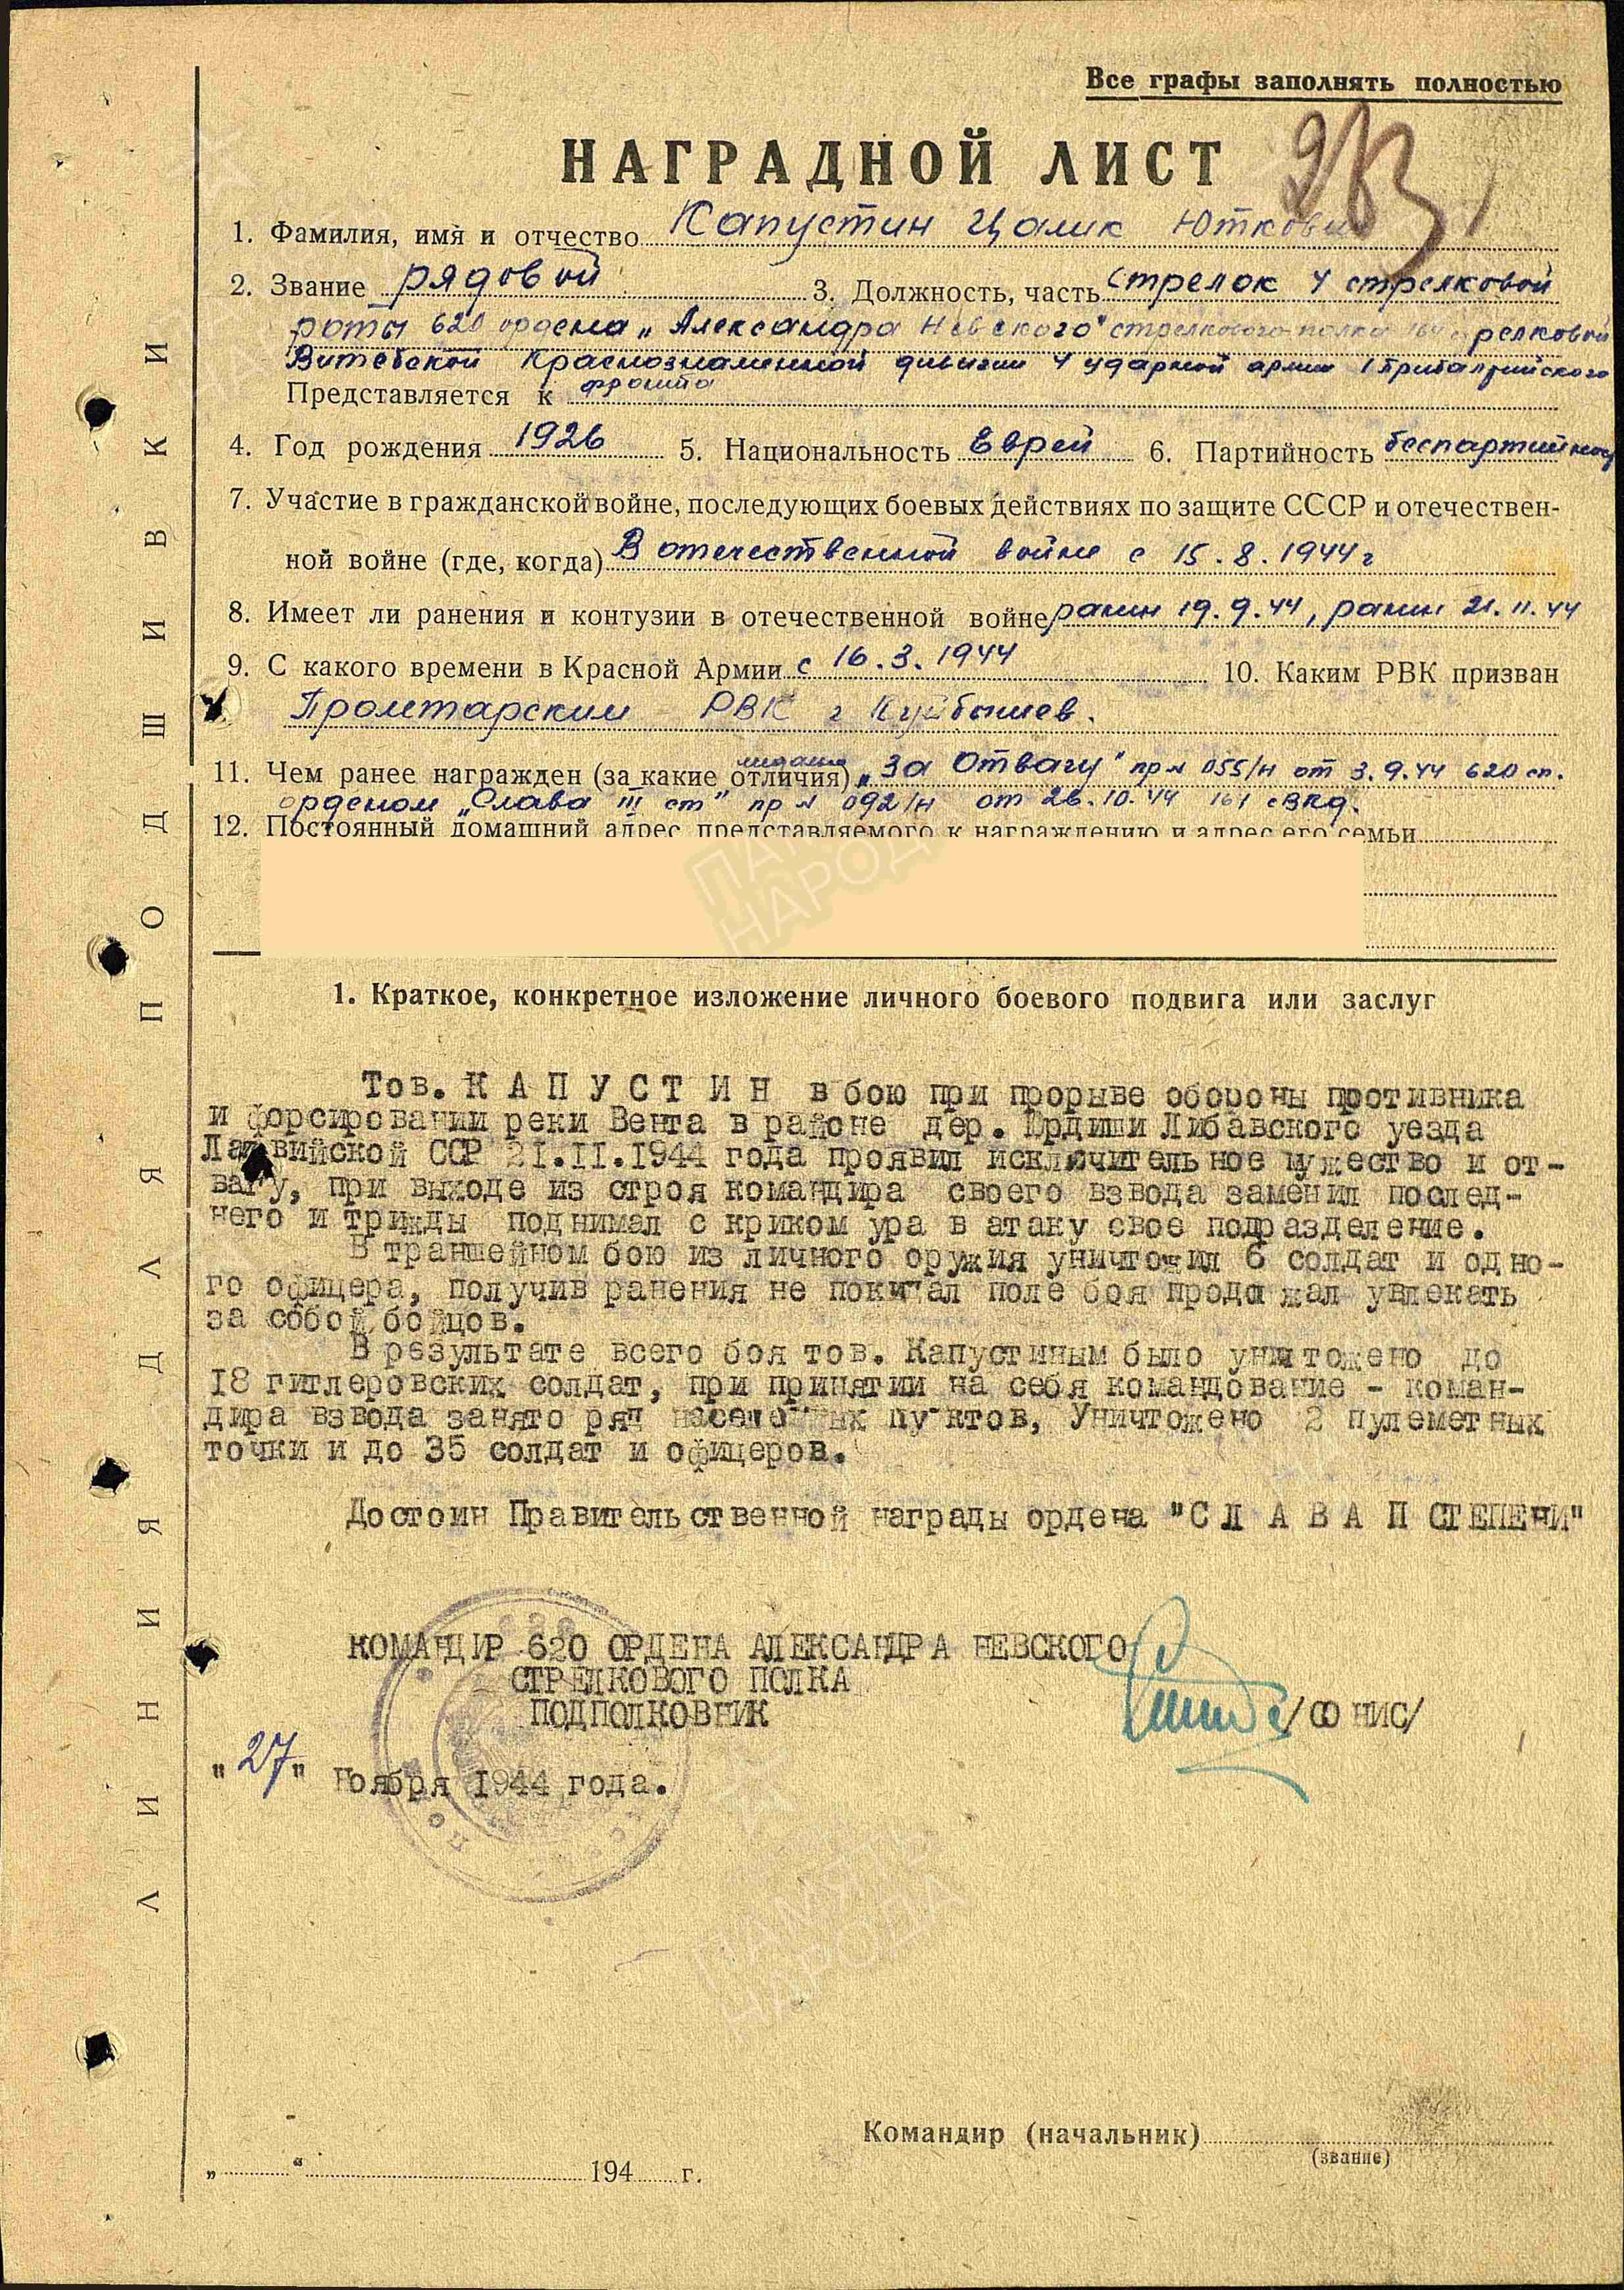 Все графы заполнять полностью
НАГРАДНОЙ ЛИСТ
1. Фамилия, имя и отчество Капустин Цалик Юткович
2. Звание рядовой 3. Должность, часть стрелок 4 стрелковой
роты 620 ордена „Александра Невского" стрелкового полка 164 стрелковой
Витебской Краснознаменной дивизии 4 ударной армии 1 Прибалтийского
фронта
Представляется к
4. Год рождения 1926 5. Национальность Еврей 6. Партийность беспартийный
7. Участие в гражданской войне, последующих боевых действиях по защите СССР и отечествен-
ной войне (где, когда) В отечественной войне с 15.8.1944г
8. Имеет ли ранения и контузии в отечественной войне ранен 19.9.44, ранен 21.11.44
9. С какого времени в Красной Армии с 16.3.1944 10. Каким РВК призван
Пролетарским РВК г Куйбышев.
11. Чем ранее награжден (за какие отличия) медалью „За Отвагу" пр № 055/н от 3.9.44 620 сп.
орденом „Слава III ст" пр № 092/н от 26.10.44 164 сВКд.
12. Постоянный домашний адрес представляемого к награждению и адрес его семьи
ПАМ
НАРОД
1. Краткое, конкретное изложение личного боевого подвига или заслуг
Тов. К А П У С Т И Н в бою при прорыве обороны противника
и форсировании реки Вента в районе дер. Элдиши Либавского уезда
Латвийской ССР 21.11.1944 года проявил исключительное мужество и от-
вагу, при выходе из строя командира своего взвода заменил послед-
него и трижды поднимал с криком ура в атаку свое подразделение.
В траншейном бою из личного оружия уничтожил 6 солдат и одно-
го офицера, получив ранения не покидал поле боя продолжал увлекать
за собой бойцов.
В результате всего боя тов. Капустиным было уничтожено до
18 гитлеровских солдат, при принятии на себя командование - коман-
дира взвода занято ряд населенных пунктов, Уничтожено 2 пулеметных
точки и до 35 солдат и офицеров.
Достоин Правительственной награды ордена "С Л А В А П СТЕПЕНИ"
КОМАНДИР 620 ОРДЕНА АЛЕКСАНДРА НЕВСКОГО
СТРЕЛКОВОГО ПОЛКА
ПОДПОЛКОВНИК /ФОНИС/
"27" Ноября 1944 года.
ПАМЯТЬ
НАРОДА
Командир (начальник)
(звание)
„ “ 194 г.
ЛИНИЯ ДЛЯ ПОДШИВКИ